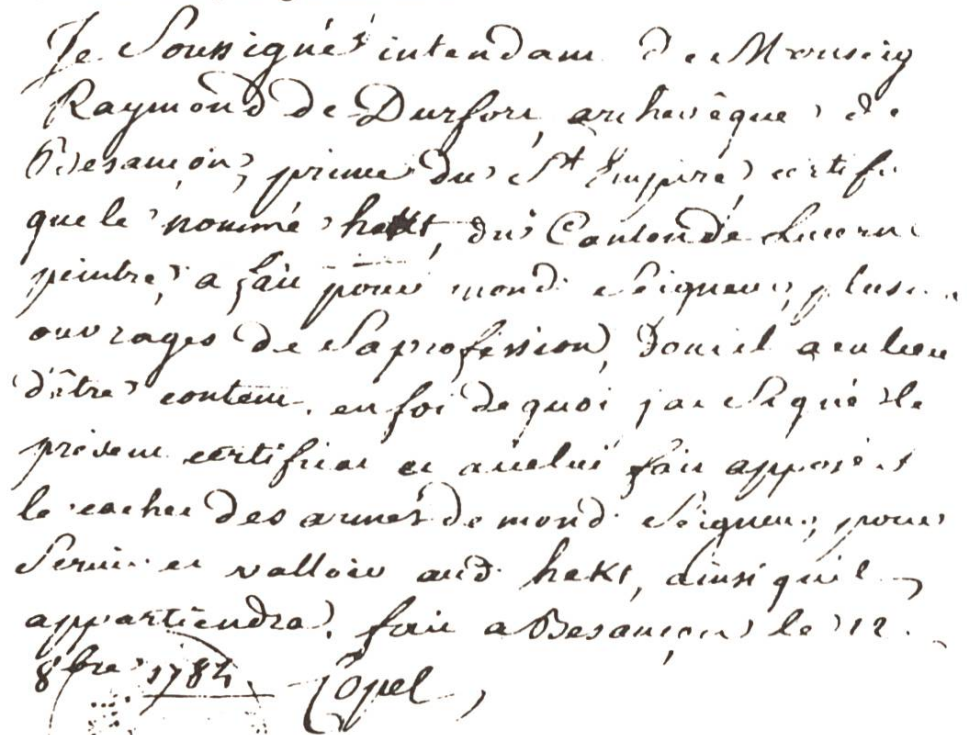 Je Soussigné intendant de Monseig
Raymond de Durfort, archevêque de
Besançon, prince du St Empire, certifi
que le nommé hekt, du Canton de Lucerne
peintre, a fait pour mond. Seigneur, plusie
ouvrages de Sa profession, dont il a eu lieu
d'être content. en foi de quoi j'ai Signé le
présent certificat et a icelui fait apposer
le cachet des armes de mond. Seigneur, pour
Servir et valloir aud. hekt, ainsi qu'il
appartiendra. fait a Besançon le 12.
8bre 1784. Copel